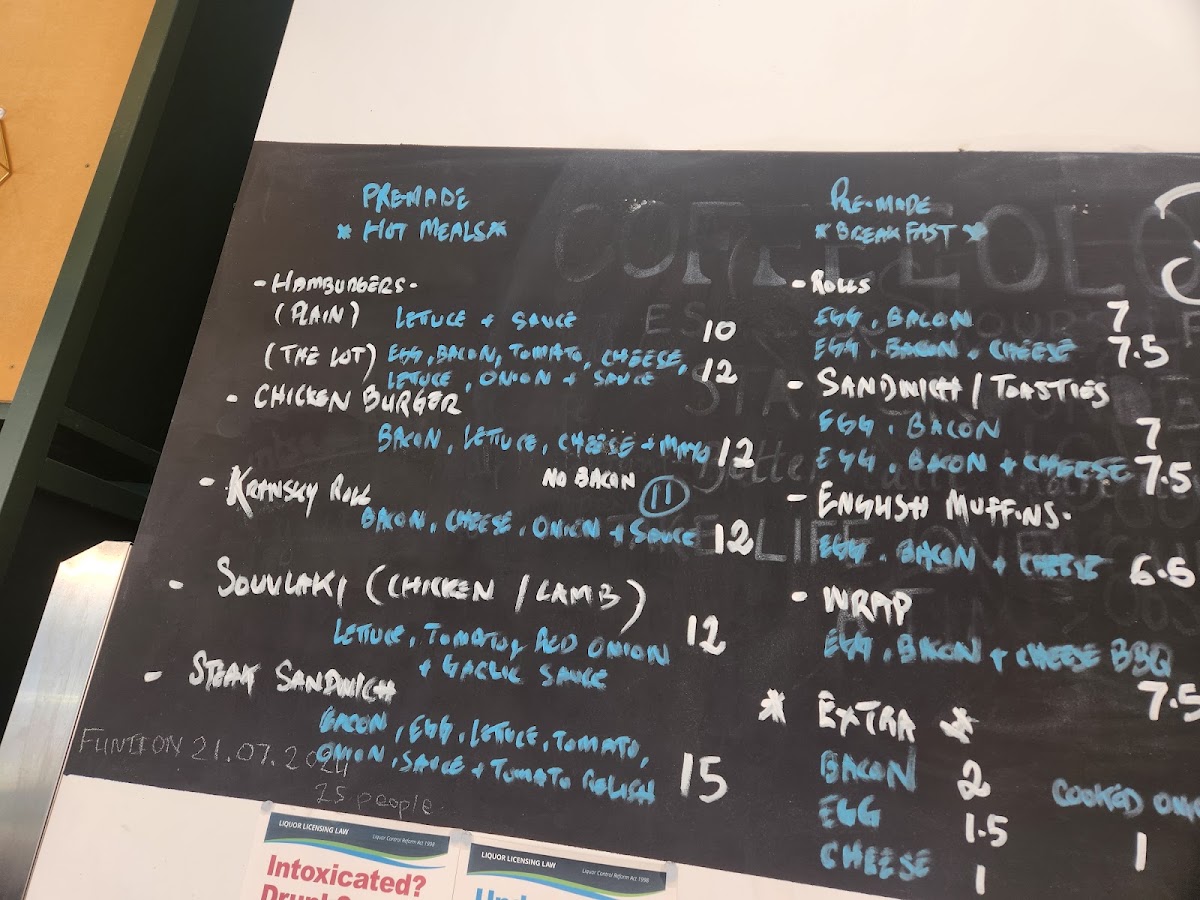 PRE-MADE
* HOT MEALS *
- HAMBURGERS -
(PLAIN) LETUCE + SAUCE 10
(THE LOT) EGG, BACON, TOMATO, CHEESE,
LETUCE, ONION + SAUCE 12
- CHICKEN BURGER
BACON, LETTUCE, CHEESE + MAYO 12
NO BACON 11
- KRANSKY ROLL
BACON, CHEESE, ONION + SAUCE 12
- SOUVLAKI (CHICKEN / LAMB)
LETTUCE, TOMATO, RED ONION 12
+ GARLIC SAUCE
- STEAK SANDWICH
BACON, EGG, LETUCE, TOMATO,
ONION, SAUCE + TOMATO RELISH 15
21.07.2024
25 people
PRE-MADE
* BREAKFAST *
- ROLLS
EGG, BACON 7
EGG, BACON + CHEESE 7.5
- SANDWICH / TOASTIES
EGG, BACON 7
EGG, BACON + CHEESE 7.5
- ENGLISH MUFFINS.
EGG, BACON + CHEESE 6.5
- WRAP
EGG, BACON + CHEESE BBQ
7.5
* EXTRA *
BACON 2
EGG 1.5
CHEESE 1
COOKED
1
COFFEE
LIQUOR LICENSING LAW
Liquor Control Reform Act 1998
Intoxicated?
LIQUOR LICENSING LAW
Liquor Control Reform Act 1998